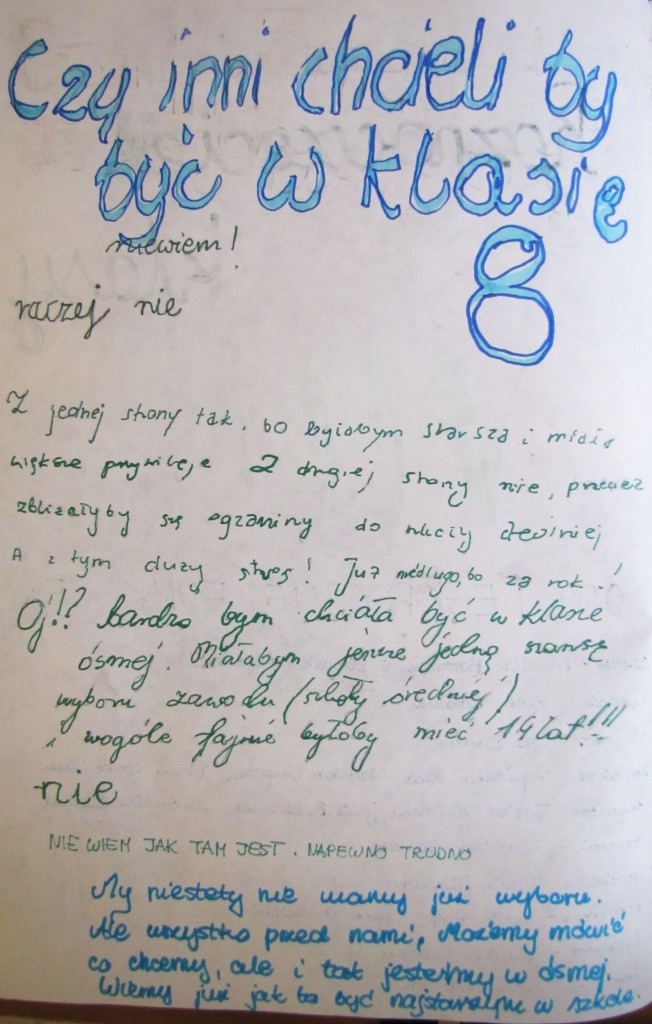 Czy inni chcieli by
być w klasię
8
niewiem!
raczej nie
Z jednej strony tak, bo byłabym starsza i
większe przywileje Z drugiej strony nie, przecież
zbliżałyby się egzaminy do
A z tym duży stres! Już niedługo, bo za rok!
Oj!!? bardzo bym chciała być w klasie
ósmej. Miałabym jeszcze jedną szansę
wyboru zawodu (szkoły średniej)
i wogóle fajnie byłoby mieć 14 lat!!!
nie
NIE WIEM JAK TAM JEST. NAPEWNO TRUDNO
My niestety nie mamy już wyboru.
Ale wszystko przed nami, Możemy mówić
co chcemy, ale i tak jesteśmy w ósmej.
Wiemy już jak to być najstarszym w szkole.